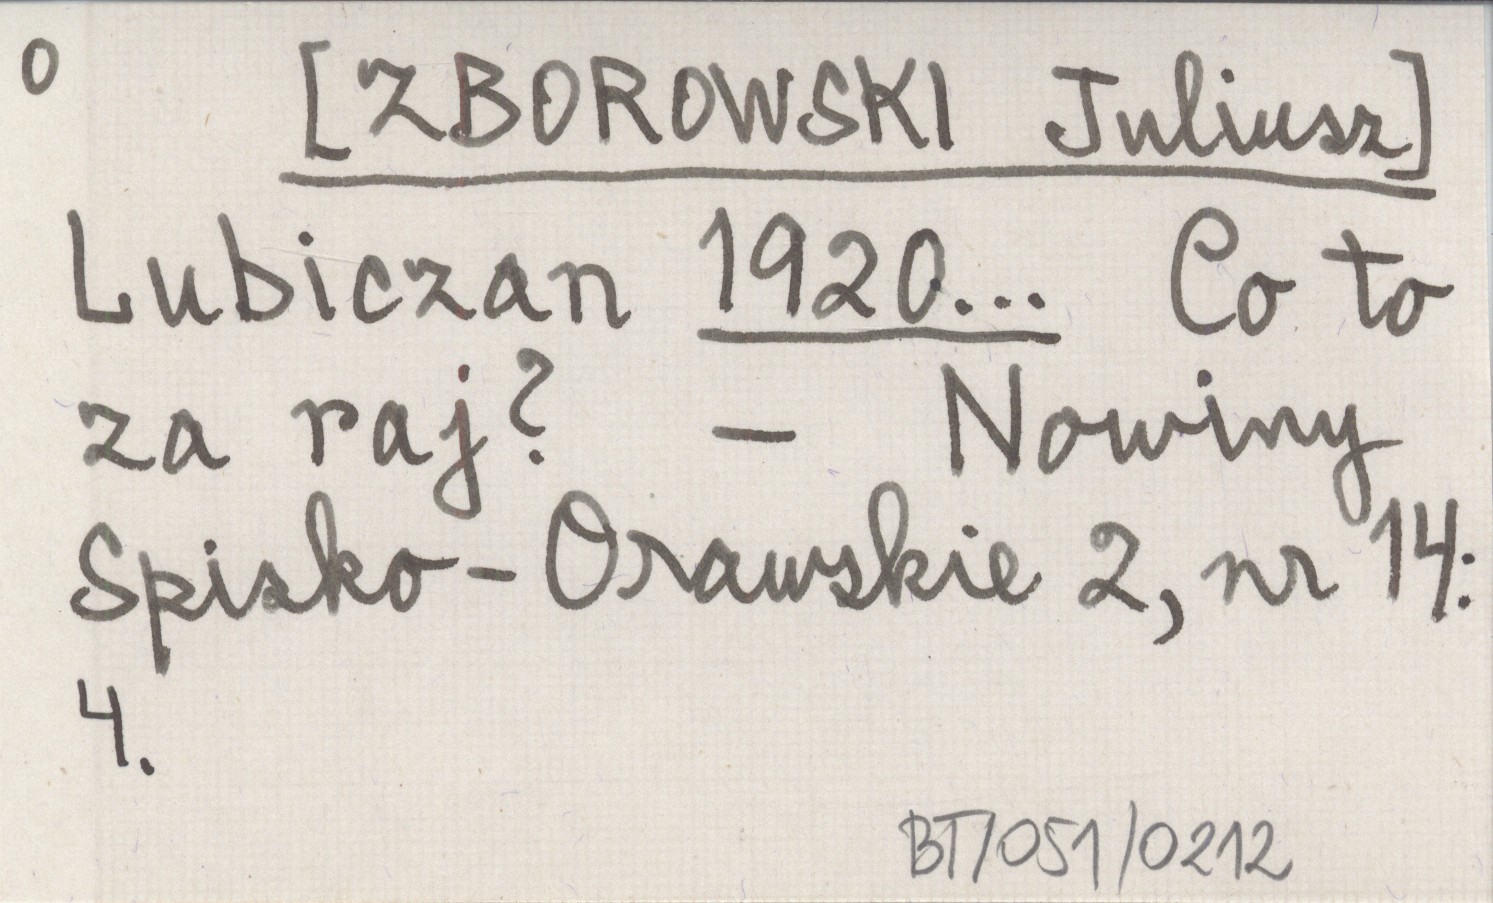 0 [ZBOROWSKI Juliusz]
Lubiczan 1920... Co to
za raj? – Nowiny
Spisko-Orawskie 2, nr 14:
4.
BT/051/0212